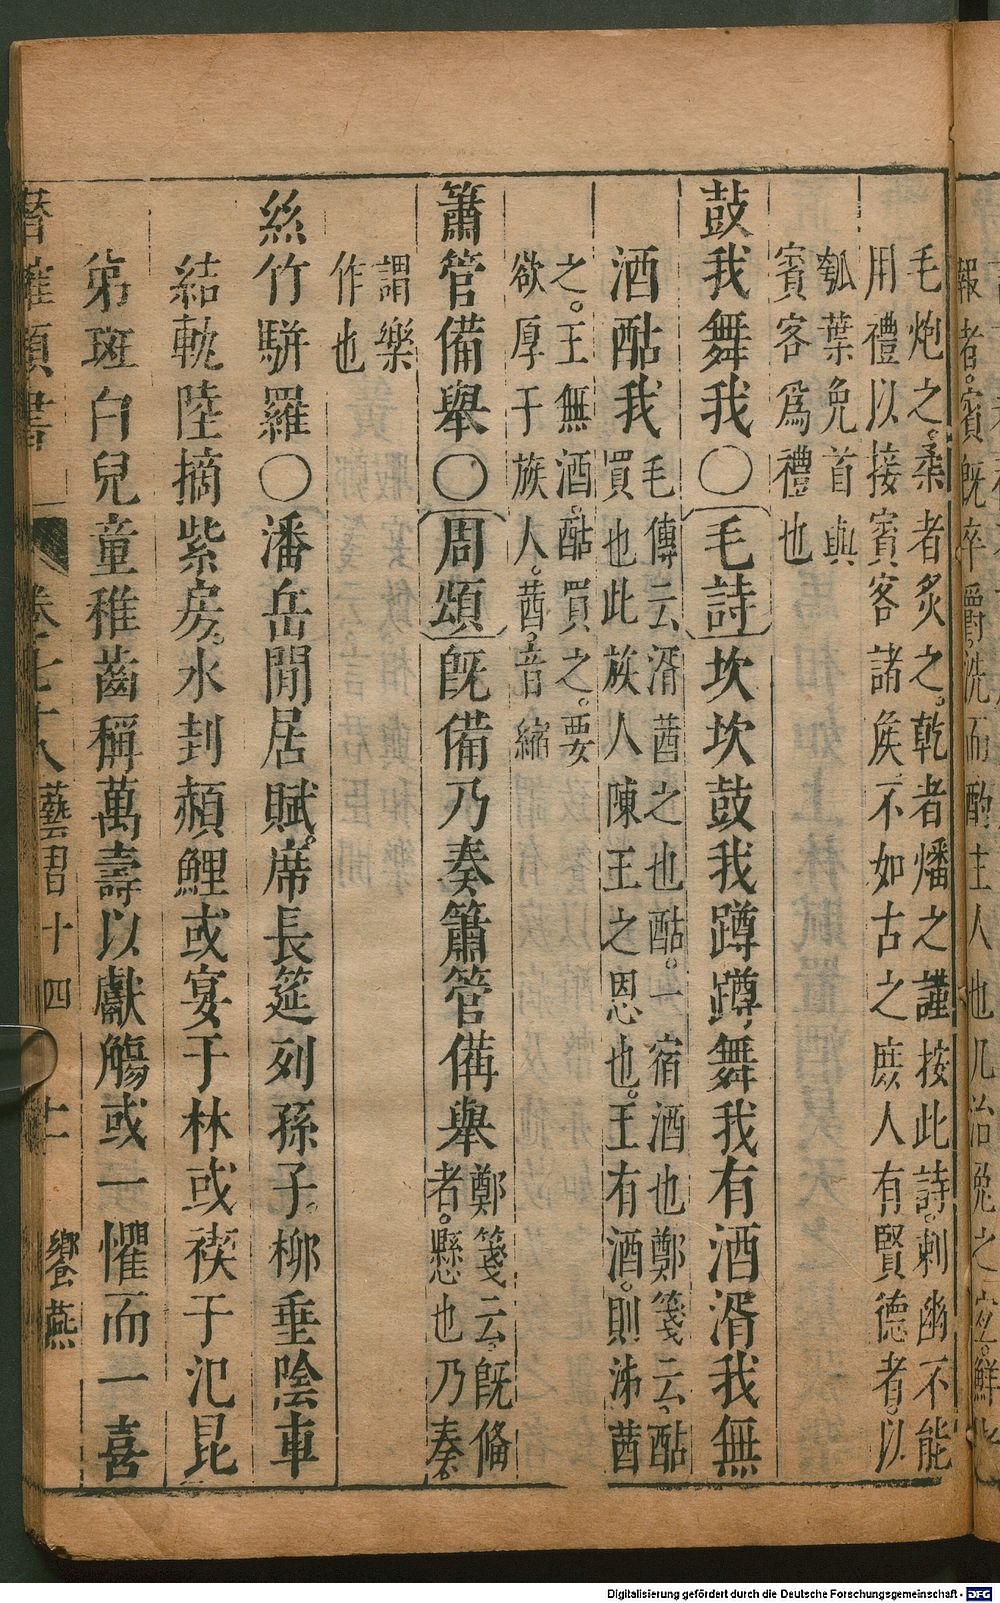 報者。賓既卒爵。洗而酌主人也凡治兔之宜。鮮
毛炮之。柔者炙之。乾者燔之謹按此詩。刺幽不能
用禮以接賓客諸矦不如古之庶人有賢德者。以
瓠葉免首與
賓客爲禮也
鼓我舞我〇毛詩坎坎鼓我蹲蹲舞我有酒湑我無
酒酤我毛傳云湑莤之也酤。一宿酒也鄭箋云酤
買也此族人陳王之恩也。王有酒。則泲莤
之。王無酒。酤買之。要
欲厚于族人。莤。音縮
簫管備舉〇周頌旣備乃奏簫管備舉鄭箋云旣俻
者。懸也乃奏
謂樂
作也
絲竹駢羅〇潘岳閒居賦。席長筵列孫子。柳垂陰車
結軌陸摘紫房。水卦頳鯉或宴于林或禊于氾昆
弟斑白兒童稚齒稱萬壽以獻觴或一懼而一喜
卷七十八 藝習十四 十一 饗燕
Digitalisierung gefördert durch die Deutsche Forschungsgemeinschaft - DFG